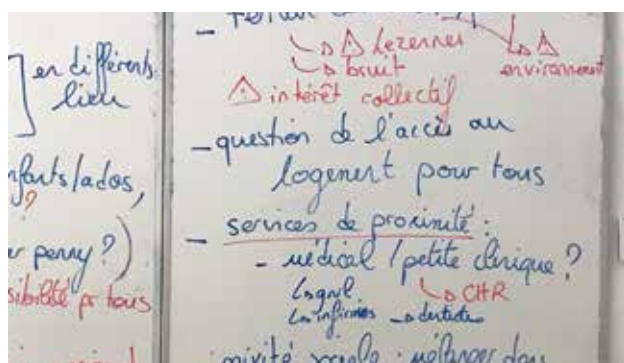 en différents
lieu
nfants/ados,
?
r penny?)
sibilité pr tous
-
↳ ⚠ Lezennes
↳ bruit
↳ ⚠
environnement
⚠ intérêt collectif
- question de l'accès au
logement pour tous
- services de proximité :
- médical / petite clinique ?
↳ gnl
↳ CHR
↳ infirmiers → dentistes
mixité sociale : mélanger dans